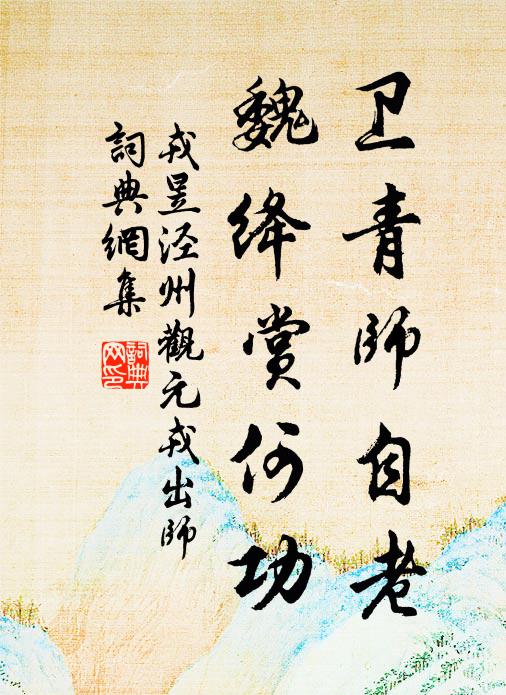 卫青师自老
魏绛赏何功
戎昱泾州觀元戎出师
詞典網集
詞典网印